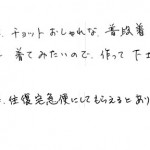 、チョットおしゃれな、普段着
着てみたいので、作って下
、往復宅急便にしてもらえるとあり